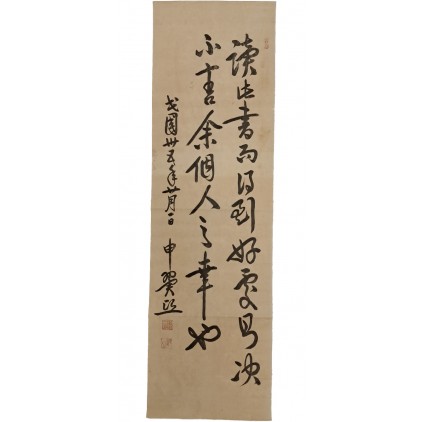 讀此書而得到好處決
不啻余個人之幸也
民國卅五年月日
申翼熙